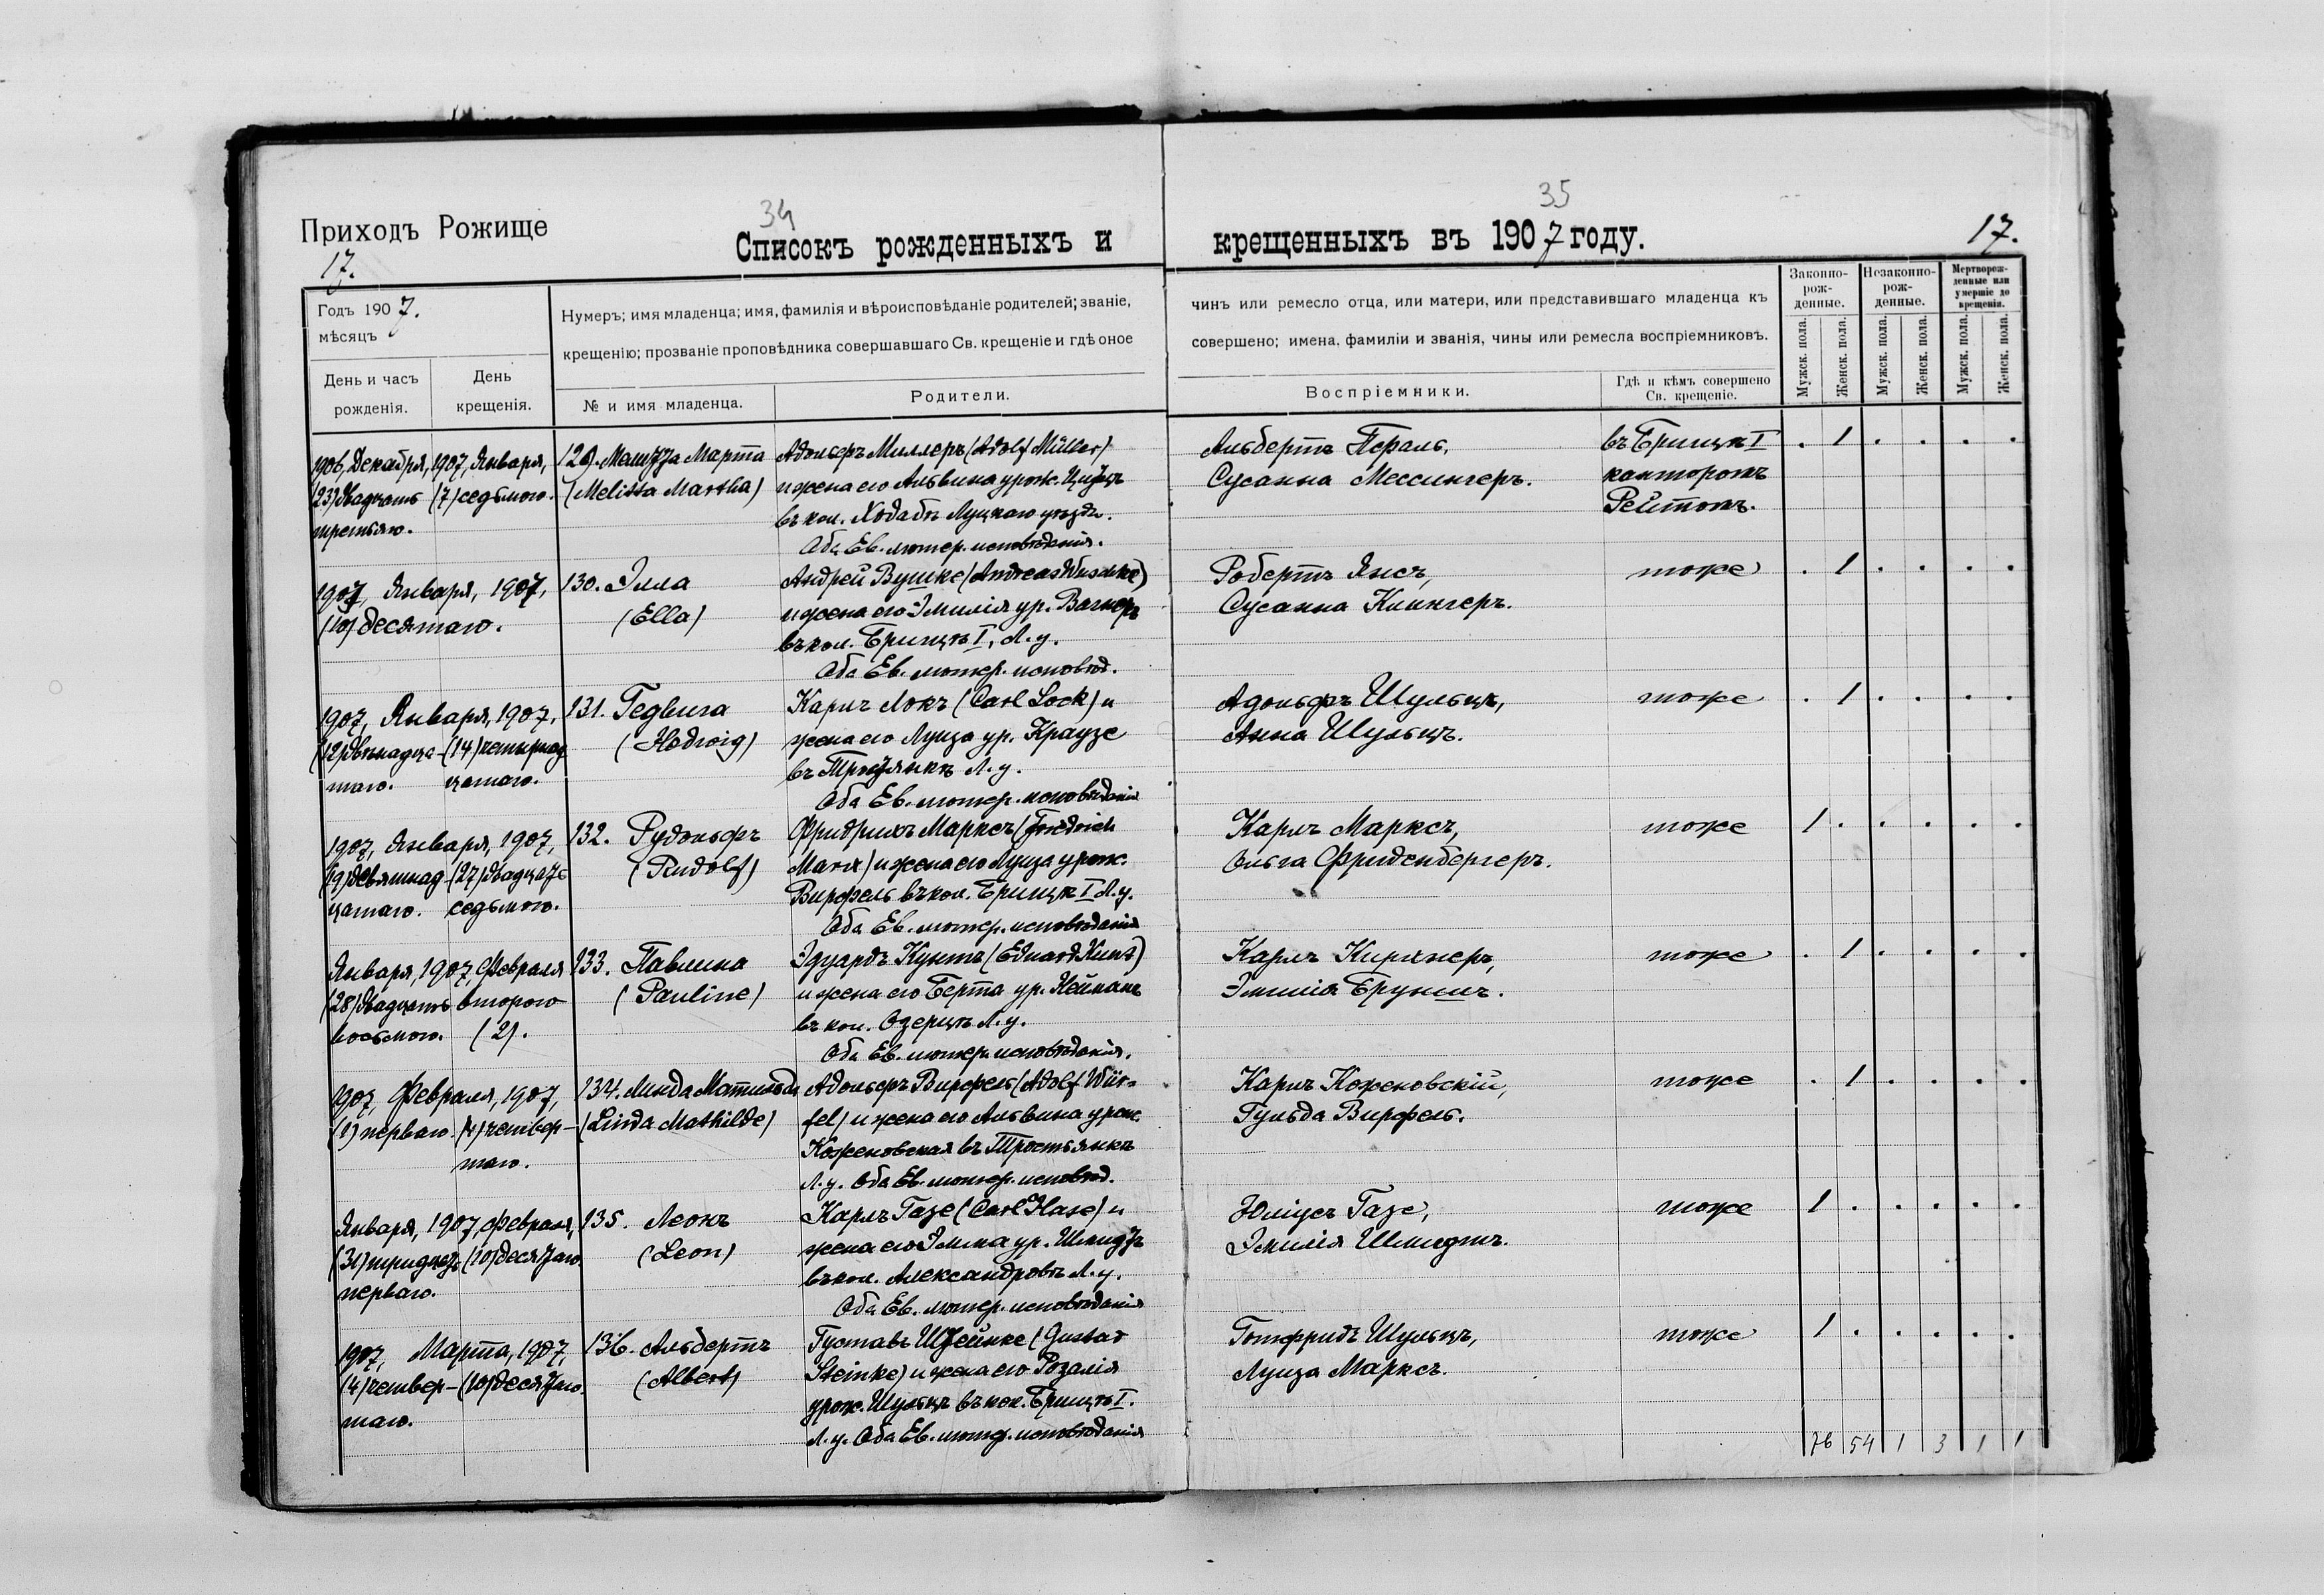 34
35
Приходъ Рожище
17.
Списокъ рожденныхъ и
крещенныхъ въ 1907 году.
17.
Годъ 1907.
мѣсяцъ
День и часъ
рожденія.
День
крещенія.
Нумеръ; имя младенца; имя, фамилія и вѣроисповѣданіе родителей; званіе,
крещенію; прозваніе проповѣдника совершавшаго Св. крещеніе и гдѣ оное
№ и имя младенца.
Родители.
чинъ или ремесло отца, или матери, или представившаго младенца къ
совершено; имена, фамиліи и званія, чины или ремесла воспріемниковъ.
Воспріемники.
Гдѣ и кѣмъ совершено
Св. крещеніе.
Законно-
рож-
денные.
Незаконно-
рож-
денные.
Мертворож-
денные или
умершіе до
крещенія.
Мужск. пола.
Женск. пола.
Мужск. пола.
Женск. пола.
Мужск. пола.
Женск. пола.
1906, Декабря, 1907, Января, 129. Мелизза Марта Адольфъ Миллеръ (Adolf Müller) Альбертъ Пераль, въ Брищкѣ I . 1 . . . .
(23) двадцать (7) седьмого. (Melissa Martha) и жена его Альвина урож. Сусанна Мессингеръ. канторомъ
третьяго. въ кол. Ходабъ Луцкаго уѣзда. Рейтомъ.
Оба Ев. лютер. исповѣданія.
1907, Января, 1907, 130. Элла Андрей Вушке (Andreas Wuschke) Робертъ Янсъ, тоже . 1 . . . .
(10) десятаго. (Ella) и жена его Эмилія ур. Вагнеръ Сусанна Клингеръ.
въ кол. Брищкѣ I, Л. у.
Оба Ев. лютер. исповѣд.
1907, Января, 1907, 131. Гедвига Карлъ Локъ (Carl Lock) и Адольфъ Шульцъ, тоже . 1 . . . .
(12) двѣнадца- (14) четырнад (Hedwig) жена его Луиза ур. Краузе Анна Шульцъ.
таго. цатаго. въ Трстянкѣ Л. у.
Оба Ев. лютер. исповѣданія
1907, Января, 1907, 132. Рудольфъ Фридрихъ Марксъ (Friedrich Карлъ Марксъ, тоже 1 . . . . .
(19) девятнад- (27) двадцать (Rudolf) Marx) и жена его Луиза урож. Ольга Фриденбергеръ.
цатаго. седьмого. Вирфель въ кол. Брищкѣ I Л. у.
Оба Ев. лютер. исповѣданія
Января, 1907, Февраля 133. Павлина Эдуардъ Кунтъ (Eduard Kunt) Карлъ Кирхнеръ, тоже . 1 . . . .
(28) двадцать второго (Pauline) и жена его Берта ур. Нейманъ Эмилія Брунишъ.
восьмого. (2). въ кол. Озерцѣ Л. у.
Оба Ев. лютер. исповѣданія.
1907, Февраля, 1907, 134. Линда Матильда Адольфъ Вирфель (Adolf Wür- Карлъ Коженовскій, тоже . 1 . . . .
(1) перваго. (4) четвер- (Linda Mathilde) fel) и жена его Альвина урож. Гульда Вирфель.
таго. Коженовская въ Тростянкѣ
Л. у. Оба Ев. лютер. исповѣд.
Января, 1907, Февраля, 135. Леонъ Карлъ Газе (Carl Hase) и Юліусъ Газе, тоже 1 . . . . .
(31) тридцать (10) десятаго. (Leon) жена его Эмма ур. Шмидтъ Эмилія Шмидтъ.
перваго. въ кол. Александровѣ Л. у.
Оба Ев. лютер. исповѣданія
1907, Марта, 1907, 136. Альбертъ Густавъ Штейнке (Gustav Готфридъ Шульцъ, тоже 1 . . . . .
(4) четвер- (10) десятаго. (Albert) Steinke) и жена его Розалія Луиза Марксъ.
таго. урож. Шульцъ въ кол. Брищкѣ I.
Л. у. Оба Ев. лютер. исповѣданія
76 54 1 3 1 1